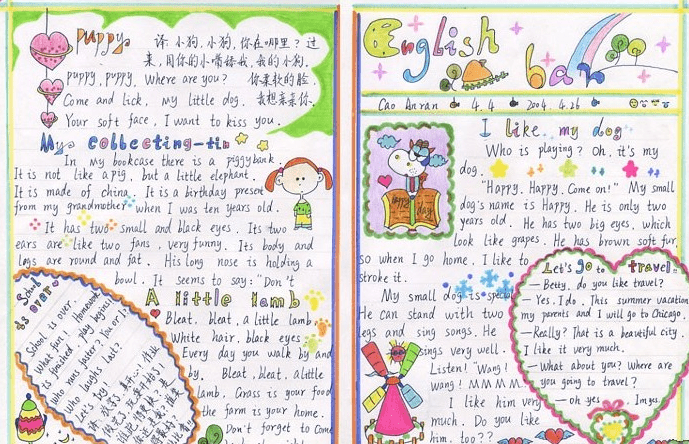 puppy
译:小狗,小狗,你在哪里?过
来,用你的小嘴舔我,我的小狗.
puppy, puppy, Where are you? 你柔软的脸,
Come and lick, my little dog. 我想亲亲你.
Your soft face, I want to kiss you.
My collecting-tin
In my bookcase there is a piggybank.
It is not like a pig, but a little elephant.
It is made of china. It is a birthday present
from my grandmother when I was ten years old.
It has two small and black eyes. Its two
ears are like two fans, very funny. Its body and
legs are round and fat. His long nose is holding a
bowl. It seems to say: "Don't
School
is over.
School is over.
What fun! Homework
is finished. play begins.
Who runs faster? You or I?
Who laugh last?
Let's try.
A little lamb
Bleat, bleat, a little lamb
White hair, black eyes,
Every day you walk by and
by. Bleat, bleat, a little
lamb, Grass is your food
the farm is your home.
Don't forget to come
English
bar
Cao Anran 4.4 2004.4.26
I like my dog
Who is playing? Oh, it's my
dog.
"Happy, Happy, Come on!" My small
dog's name is Happy. He is only two
years old. He has two big eyes, which
look like grapes. He has brown soft fur,
so when I go home, I like to
stroke it.
My small dog is special
He can stand with two
legs and sing songs. He
sings very well.
Listen! "Wang!
wang! MMMM
I like him very
much. Do you like
him, too??
Happy day
Let's go to travel.
— Betty, do you like travel?
— Yes, I do. This summer vacation,
my parents and I will go to Chicago.
— Really? That is a beautiful city.
I like it very much.
— What about you? Where are
you going to travel?
— Oh yes